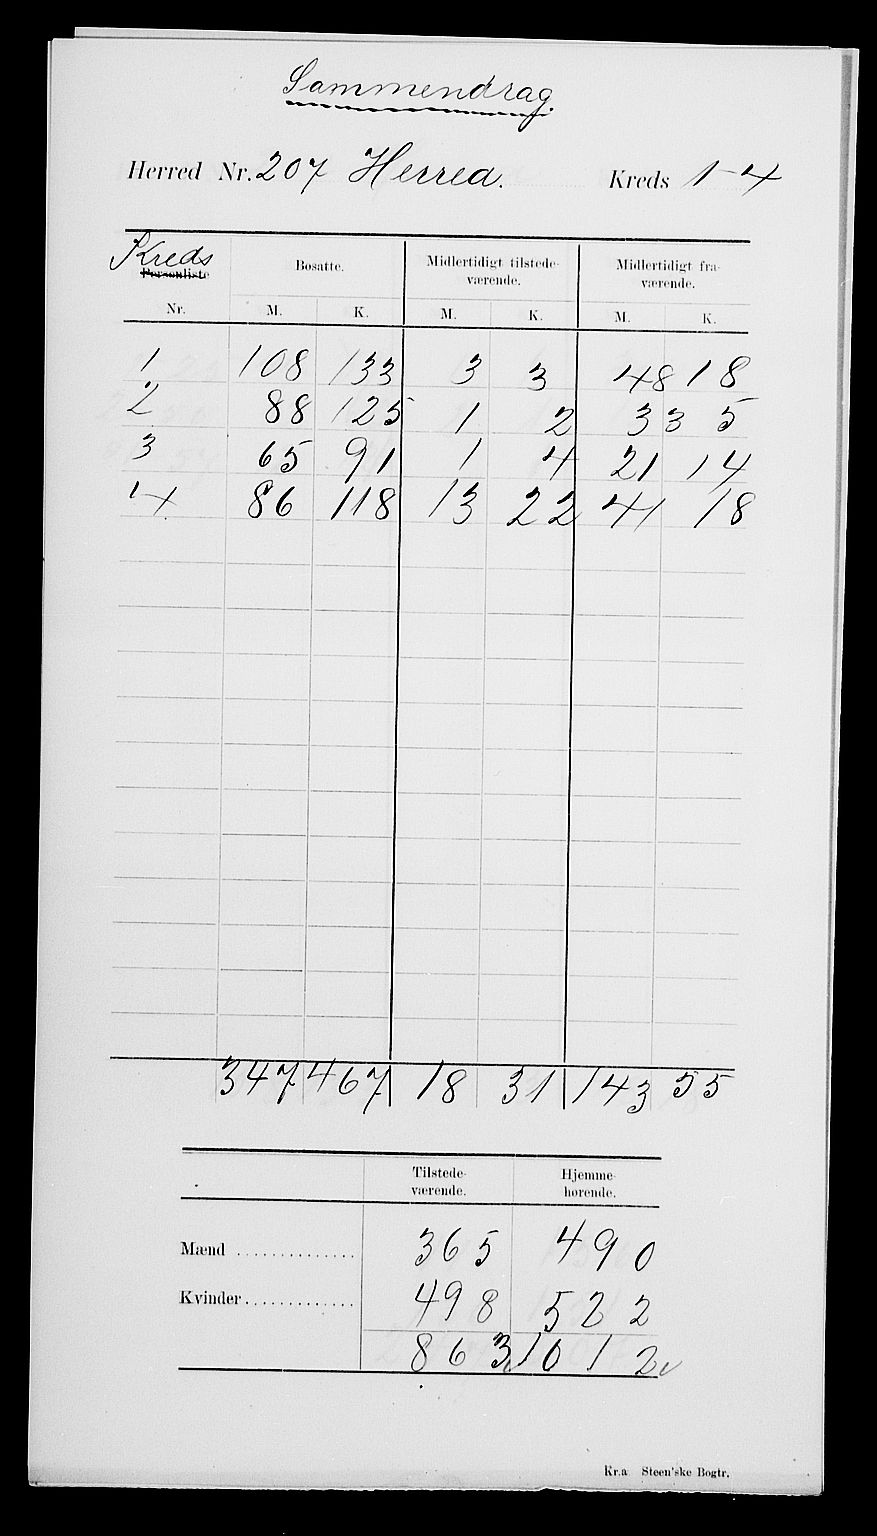 Sammendrag
Herred Nr. 207 Herred. Kreds 1-4
Kreds
Personliste
Nr.
Bosatte.
Midlertidigt tilstede-
værende.
Midlertidigt fra-
værende.
M. K. M. K. M. K.
1 108 133 3 3 48 18
2 88 125 1 2 33 5
3 65 91 1 4 21 14
4 86 118 13 22 41 18
347 467 18 31 143 55
Tilstede-
værende.
Hjemme-
hørende.
Mænd .............. 365 490
Kvinder ............. 498 522
863 1012
Kr.a Steen'ske Bogtr.